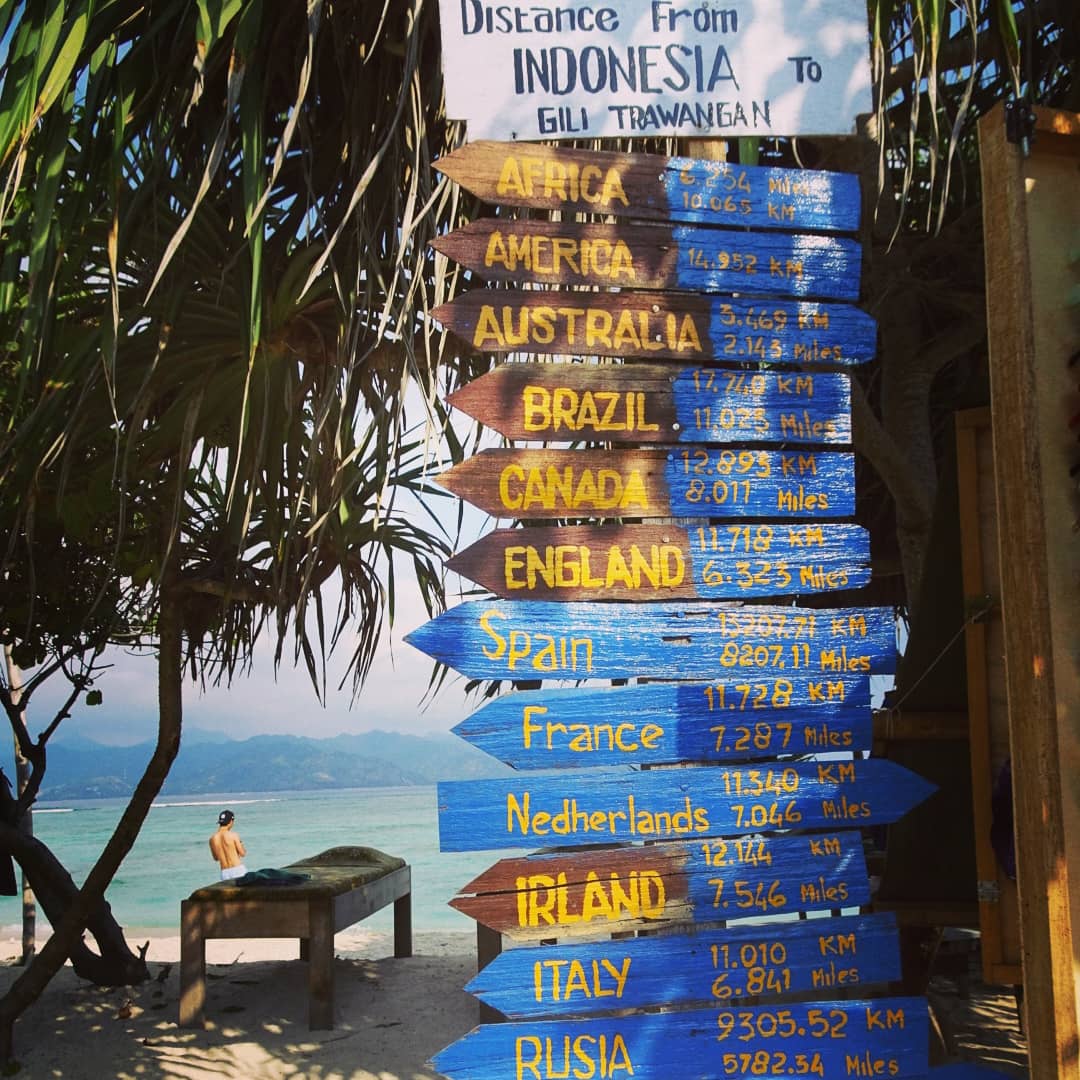 Distance From
INDONESIA To
GILI TRAWANGAN
AFRICA 6.254 Miles
10.065 KM
AMERICA 14.952 KM
AUSTRALIA 3.469 KM
2.143 Miles
BRAZIL 17.740 KM
11.025 Miles
CANADA 12.893 KM
8.011 Miles
ENGLAND 11.718 KM
6.323 Miles
Spain 13207.71 KM
8207.11 Miles
France 11.728 KM
7.287 Miles
Nedherlands 11.340 KM
7.046 Miles
IRLAND 12.144 KM
7.546 Miles
ITALY 11.010 KM
6.841 Miles
RUSIA 9305.52 KM
5782.34 Miles